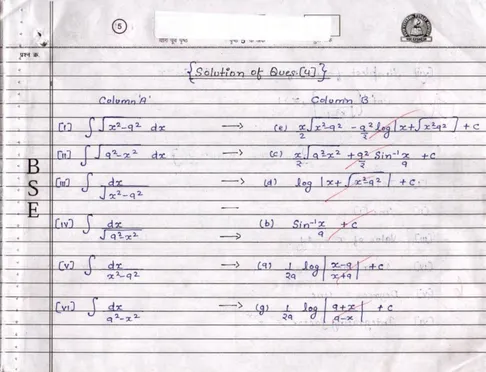 5
प्रश्न क्र.
{Solution of Ques.[4]}
Column 'A' Column 'B'
[i] ∫ √x²-a² dx → (e) x/2 √x²-a² - a²/2 log|x+√x²-a²| + c
[ii] ∫ √a²-x² dx → (c) x/2 √a²-x² + a²/2 Sin⁻¹ x/a + c
[iii] ∫ dx/√x²-a² → (d) log |x+√x²-a²| + c.
[iv] ∫ dx/√a²-x² → (b) Sin⁻¹ x/a + c
[v] ∫ dx/x²-a² → (a) 1/2a log |x-a/x+a| + c
[vi] ∫ dx/a²-x² → (g) 1/2a log |a+x/a-x| + c
BSE